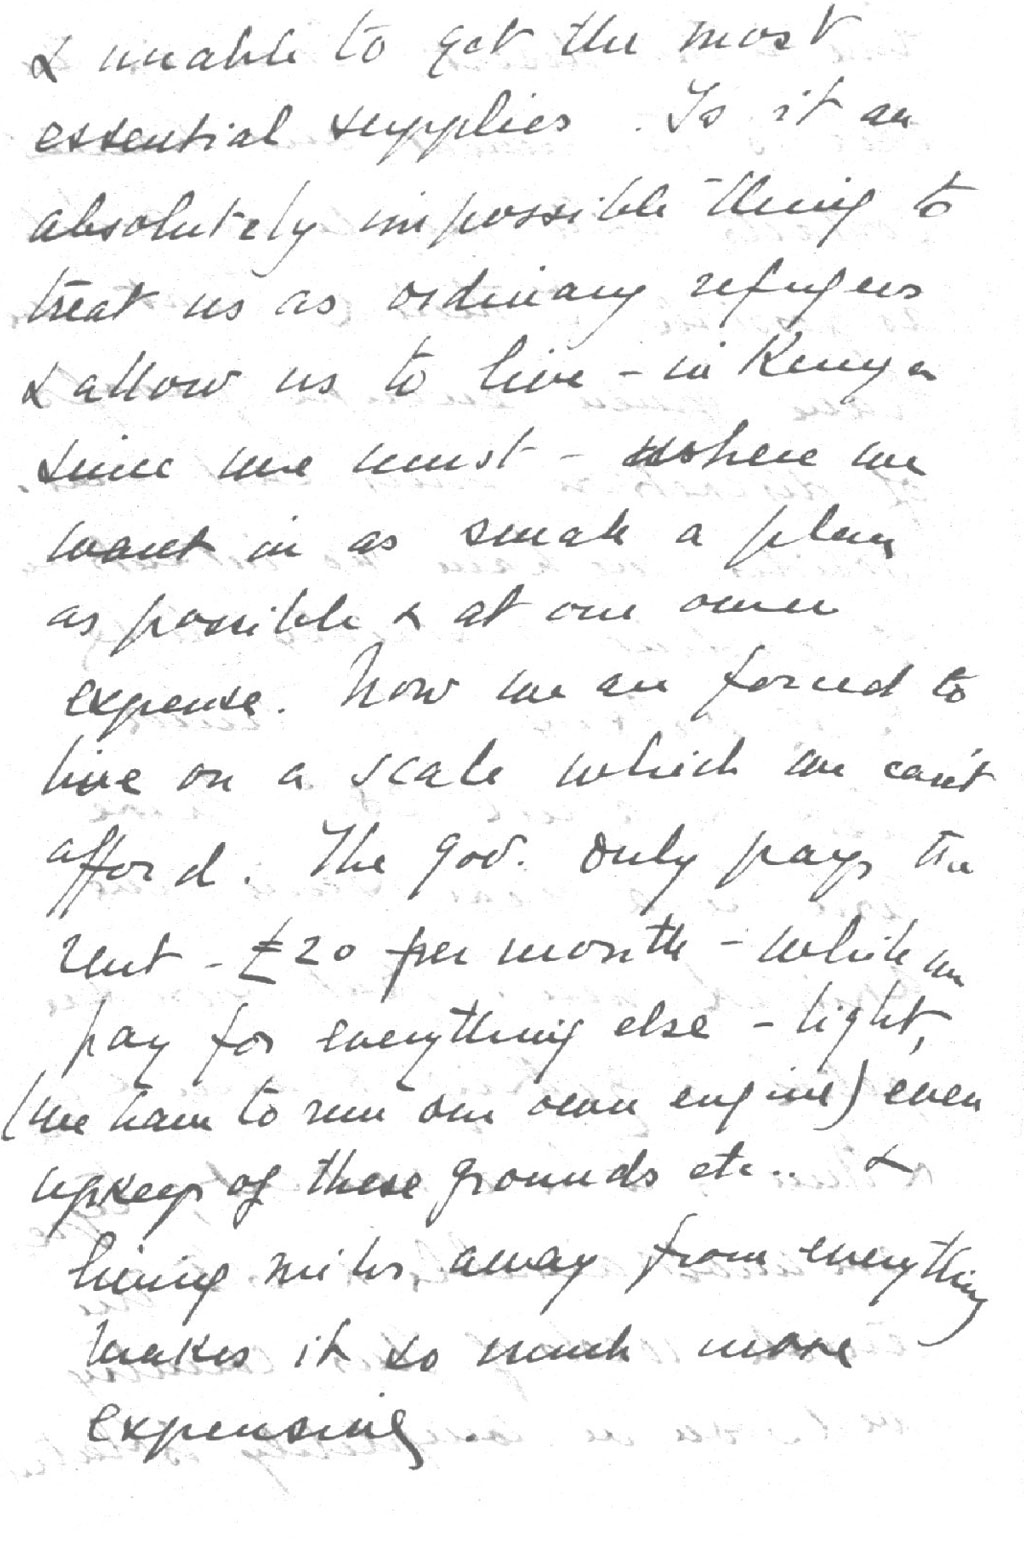 & unable to get the most
essential supplies. Is it an
absolutely impossible thing to
treat us as ordinary refugees
& allow us to live - in Kenya
since we must - where we
want in as small a place
as possible & at our own
expense. Now we are forced to
live on a scale which we can't
afford. The gov. only pays the
rent - £20 per month - while we
pay for everything else - light,
(we have to run our own engine) even
upkeep of these grounds etc.. &
living miles away from everything
makes it so much more
expensive.